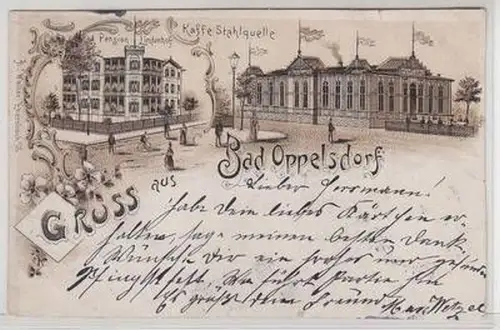 Pension Lindenhof
Kaffe Stahlquelle
Gruss aus
Bad Oppelsdorf
Lieber Herrmann!
habe Dein liebes Kärtchen er-
halten, sage meinen besten Dank
Wünsche Dir ein frohes
Pfingstfest.
Es grüßt Dein Freund Max Wetzel